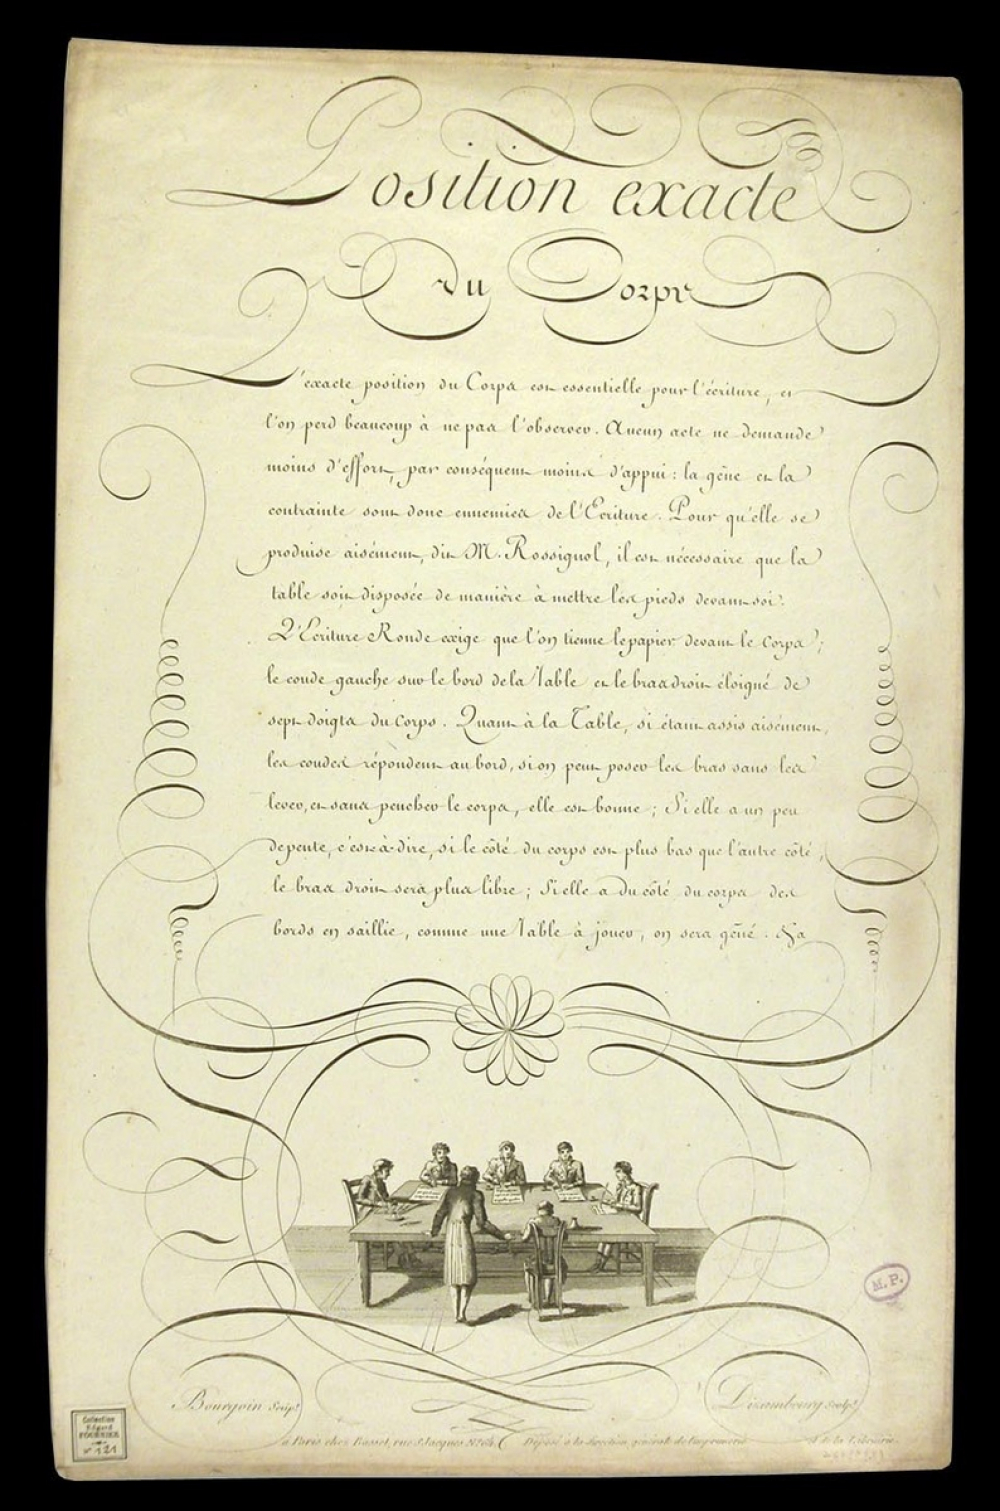 Position exacte
Du Corps
L'exacte position du Corps est essentielle pour l'écriture, et
l'on perd beaucoup à ne pas l'observer. Aucun acte ne demande
moins d'effort, par conséquent moins d'appui : la gêne et la
contrainte sont donc ennemies de l'Ecriture. Pour qu'elle se
produise aisément, dit M. Rossignol, il est nécessaire que la
table soit disposée de manière à mettre les pieds devant soi.
L'Ecriture Ronde exige que l'on tienne le papier devant le Corps ;
le coude gauche sur le bord de la Table et le bras droit éloigné de
sept doigts du Corps. Quant à la Table, si étant assis aisément,
les coudes répondent au bord, si on peut poser les bras sans les
lever, et sans pencher le corps, elle est bonne ; Si elle a un peu
de pente, c'est-à-dire, si le côté du corps est plus bas que l'autre côté,
le bras droit sera plus libre ; Si elle a du côté du corps des
bords en saillie, comme une Table à jouer, on sera gêné.
M.P.
Bourgoin Sculpt.
Dizambourg Sculpt.
à Paris chez Basset, rue S. Jacques N° 64. Déposé à la direction générale de l'imprimerie et de la Librairie.
Collection
Edgard
FOURNIER
n° 121